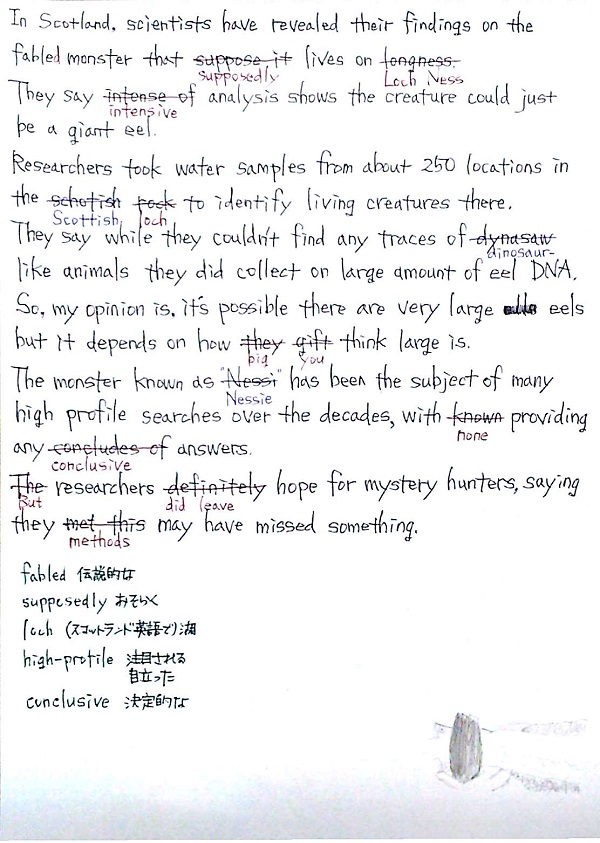 In Scotland, scientists have revealed their findings on the
fabled monster that suppose it lives on longness.
supposedly Loch Ness
They say intense of analysis shows the creature could just
intensive
be a giant eel.
Researchers took water samples from about 250 locations in
the schotish rock to identify living creatures there.
Scottish, loch
They say while they couldn't find any traces of dynasaw
dinosaur-
like animals they did collect on large amount of eel DNA.
So, my opinion is, it's possible there are very large eels
but it depends on how they gift think large is.
big you
The monster known as "Nessi" has been the subject of many
Nessie
high profile searches over the decades, with known providing
none
any concludes of answers.
conclusive
The researchers definitely hope for mystery hunters, saying
But did leave
they met this may have missed something.
methods
fabled 伝説的な
supposedly おそらく
loch (スコットランド英語で)湖
high-profile 注目される
目立った
conclusive 決定的な